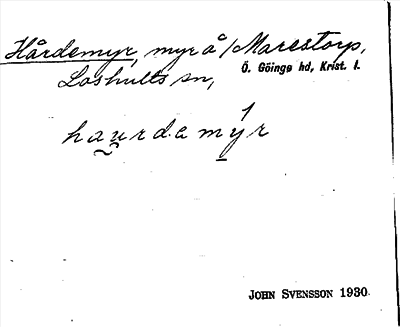 Hårdemyr, myr å/Marestorp,
Loshults sn,
Ö. Göinge hd, Krist. l.
haurdemýr
JOHN SVENSSON 1930.